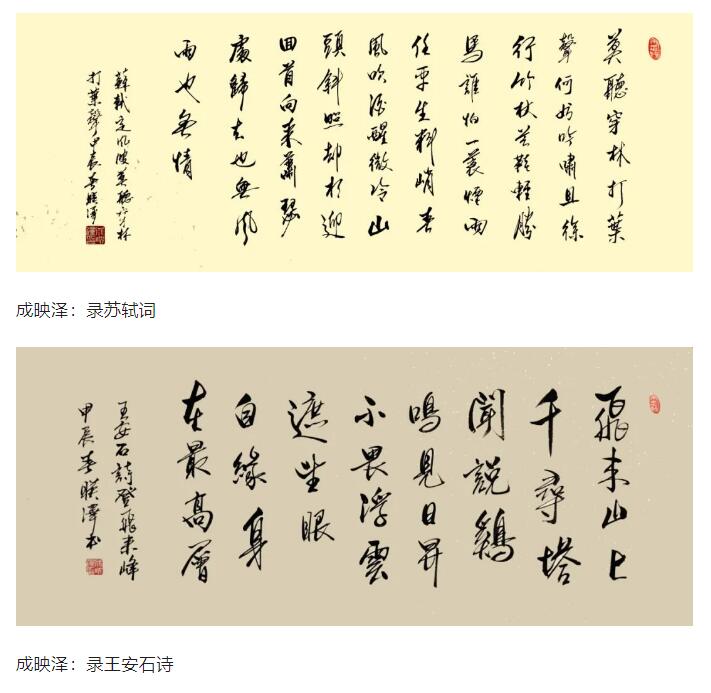 莫聽穿林打葉
聲何妨吟嘯且徐
行竹杖芒鞋輕勝
馬誰怕一蓑煙雨
任平生料峭春
風吹酒醒微冷山
頭斜照却相迎
回首向來蕭瑟
處歸去也無風
雨也無情
蘇軾定風波莫聽穿林
打葉聲甲辰春映澤
成映泽：录苏轼词
飛來山上
千尋塔
聞說鷄
鳴見日昇
不畏浮雲
遮望眼
自緣身
在最高層
王安石詩登飛來峰
甲辰春映澤書
成映泽：录王安石诗